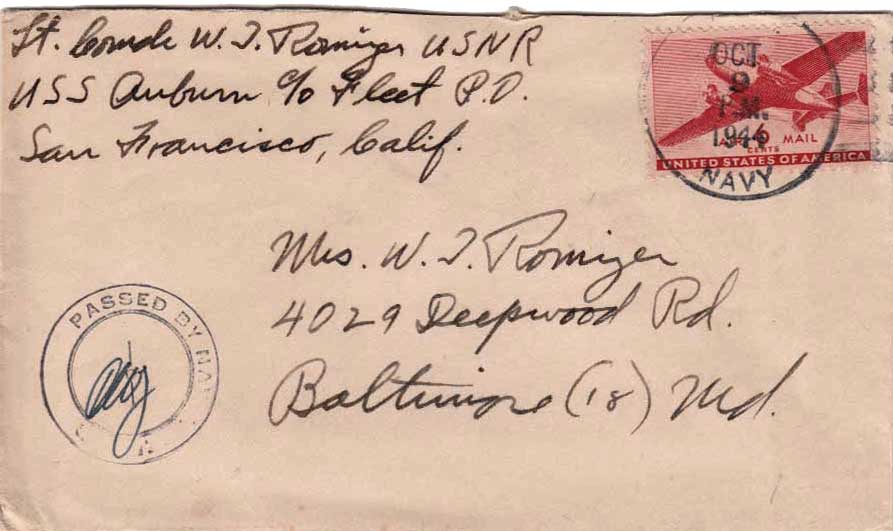 Lt. Comdr W. J. Romiger USNR
USS Auburn c/o Fleet P.O.
San Francisco, Calif.
OCT
9
P.M.
1944
NAVY
AIR MAIL
6 CENTS
UNITED STATES OF AMERICA
Mrs. W. J. Romiger
4029 Deepwood Rd.
Baltimore (18) Md.
PASSED BY NA